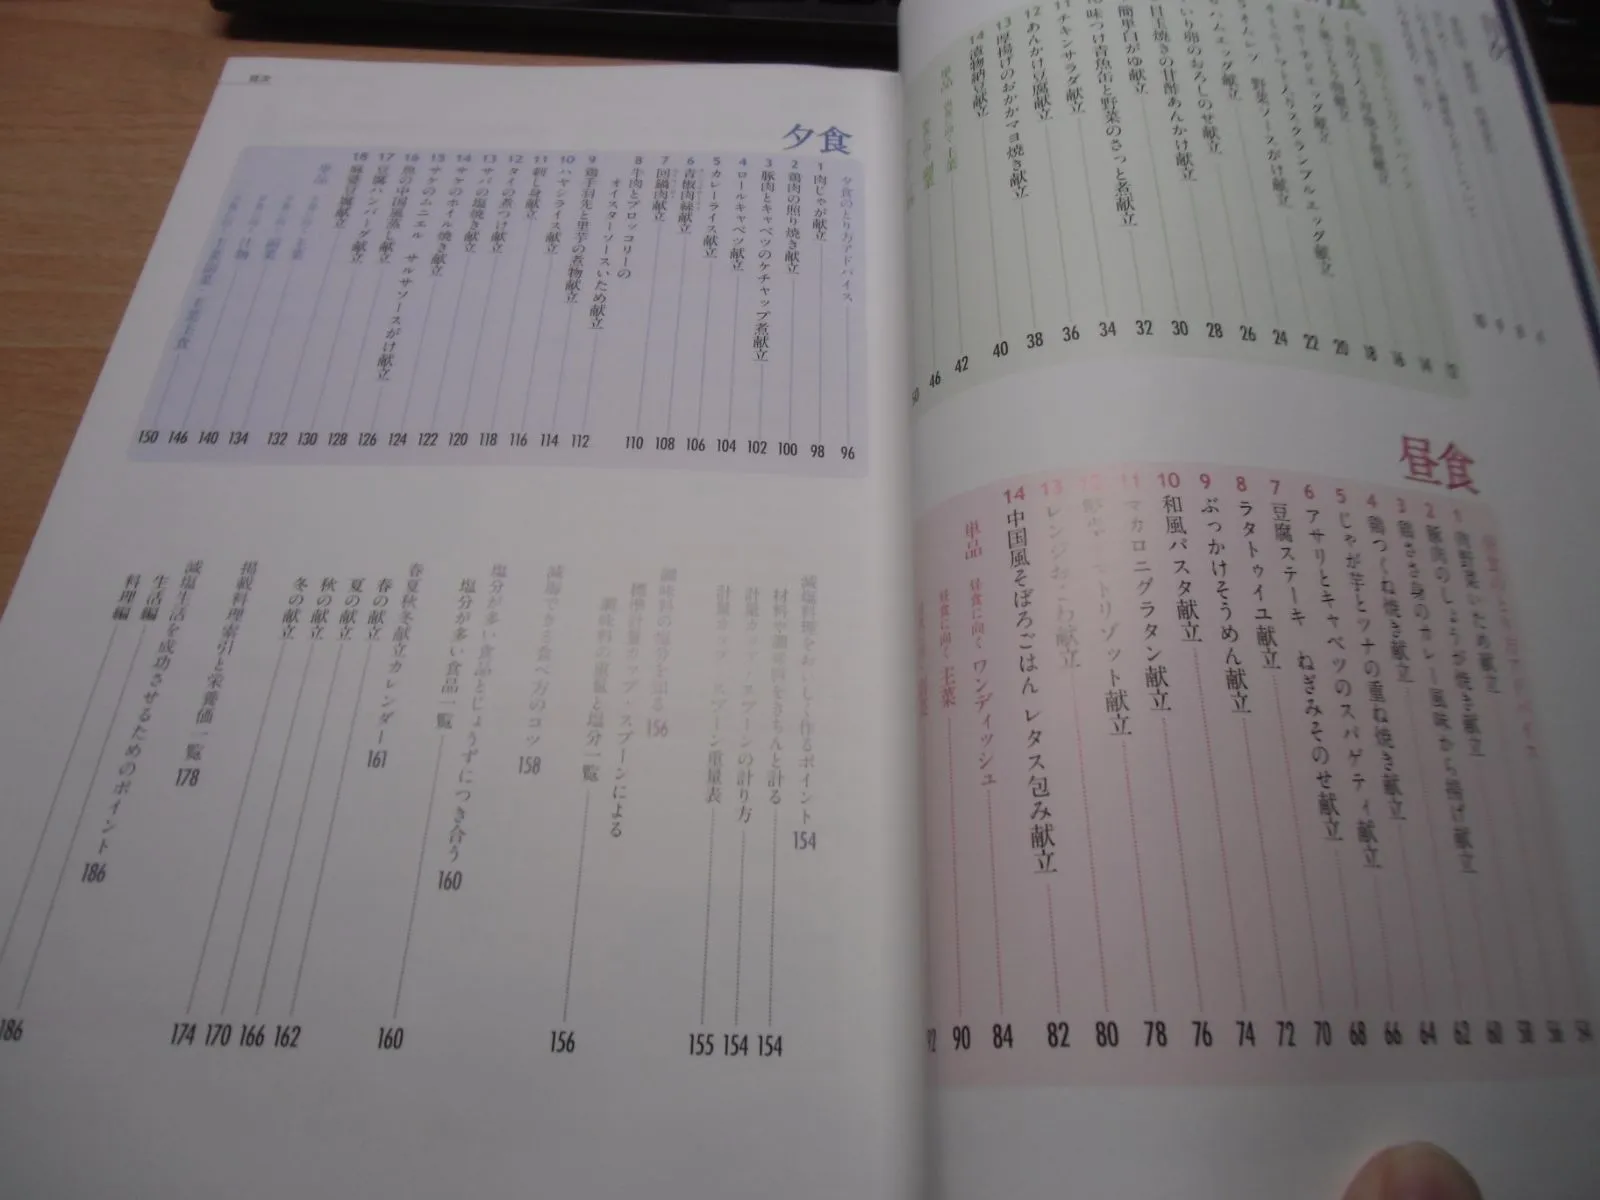 14 漬物納豆献立 40
13 厚揚げのおかかマヨ焼き献立
12 あんかけ豆腐献立 38
11 チキンサラダ献立 36
味つけ青魚缶と野菜のさっと煮献立 34
簡単白がゆ献立 32
目玉焼きの甘酢あんかけ献立 30
いり卵のおろしのせ献立 28
ハムエッグ献立 26
オムレツ 野菜ソースがけ献立 24
単品
主菜 42
46
昼食
1 肉野菜いため献立
2 豚肉のしょうが焼き献立
3 鶏ささ身のカレー風味から揚げ献立
4 鶏つくね焼き献立
5 じゃが芋とツナの重ね焼き献立
6 アサリとキャベツのスパゲティ献立
7 豆腐ステーキ ねぎみそのせ献立
8 ラタトゥイユ献立
9 ぶっかけそうめん献立
10 和風パスタ献立
11 マカロニグラタン献立
リゾット献立
13 レンジおこわ献立
14 中国風そぼろごはん レタス包み献立
単品
昼食に向く ワンディッシュ 84
昼食に向く 主菜 90
目次
夕食
夕食のとり方アドバイス 96
1 肉じゃが献立 98
2 鶏肉の照り焼き献立 100
3 豚肉とキャベツのケチャップ煮献立 102
4 ロールキャベツ献立 104
5 カレーライス献立 106
6 青椒肉絲献立 108
7 回鍋肉献立 110
8 牛肉とブロッコリーの
オイスターソースいため献立 112
9 鶏手羽先と里芋の煮物献立 114
10 ハヤシライス献立 116
11 刺し身献立 118
12 タイの煮つけ献立 120
13 サバの塩焼き献立 122
14 サケのホイル焼き献立 124
15 サケのムニエル サルサソースがけ献立 126
16 魚の中国風蒸し献立 128
17 豆腐ハンバーグ献立 130
18 麻婆豆腐献立 132
単品
主菜 134
副菜 140
汁物 146
主菜副菜・主菜主食 150
減塩料理をおいしく作るポイント 154
材料や調味料をきちんと計る 154
計量カップ・スプーンの計り方 154
計量カップ・スプーン重量表 155
調味料の塩分を知る 156
標準計量カップ・スプーンによる
調味料の重量と塩分一覧 156
減塩できる食べ方のコツ 158
塩分が多い食品とじょうずにつき合う 160
塩分が多い食品一覧 160
春夏秋冬献立カレンダー 161
春の献立 162
夏の献立 166
秋の献立 170
冬の献立 174
掲載料理索引と栄養価一覧 178
減塩生活を成功させるためのポイント 186
生活編 186
料理編